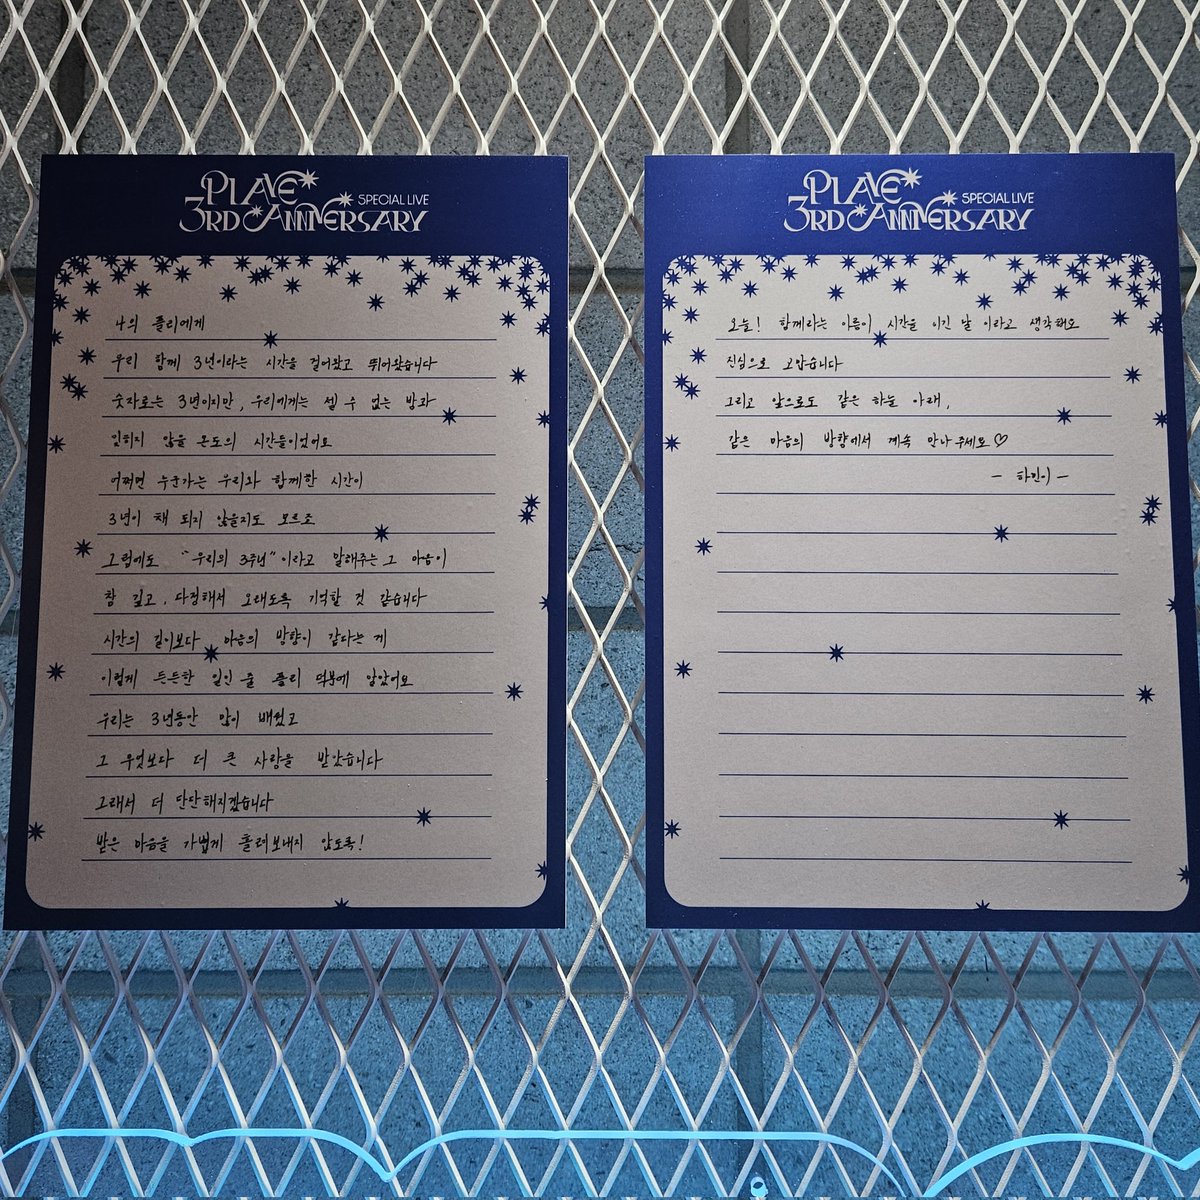 PLAVE
SPECIAL LIVE
3RD ANNIVERSARY
나의 플리에게
우리 함께 3년이라는 시간을 걸어왔고 뛰어왔습니다
숫자로는 3년이지만, 우리에게는 셀 수 없는 밤과
잊히지 않을 온도의 시간들이었어요
어쩌면 누군가는 우리와 함께한 시간이
3년이 채 되지 않을지도 모르죠
그럼에도 "우리의 3주년"이라고 말해주는 그 마음이
참 깊고, 다정해서 오래도록 기억할 것 같습니다
시간의 길이보다 마음의 방향이 같다는 게
이렇게 든든한 일인 줄 플리 덕분에 알았어요
우리는 3년동안 많이 배웠고
그 무엇보다 더 큰 사랑을 받았습니다
그래서 더 단단해지겠습니다
받은 마음을 가볍게 흘려보내지 않도록!
PLAVE
SPECIAL LIVE
3RD ANNIVERSARY
오늘! 함께라는 이름이 시간을 이긴 날 이라고 생각해요
진심으로 고맙습니다
그리고 앞으로도 같은 하늘 아래,
같은 마음의 방향에서 계속 만나주세요♡
- 하민이 -